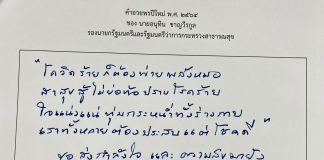 คำอวยพรปีใหม่ พ.ศ. ๒๕๖๔
ของ นายอนุทิน ชาญวีรกูล
รองนายกรัฐมนตรีและรัฐมนตรีว่าการกระทรวงสาธารณสุข
"โควิดร้ายก็ต้องพ่ายพลังหมอ
สาสุขสู้ไม่ย่อท้อปราบโรคร้าย
ใจแน่วแน่ ทุ่มกระหน่ำทั้งร่างกาย
เราทั้งหลายต้องประสบแต่โชคดี"
ขอส่งกำลังใจ และ ความสุขมายัง